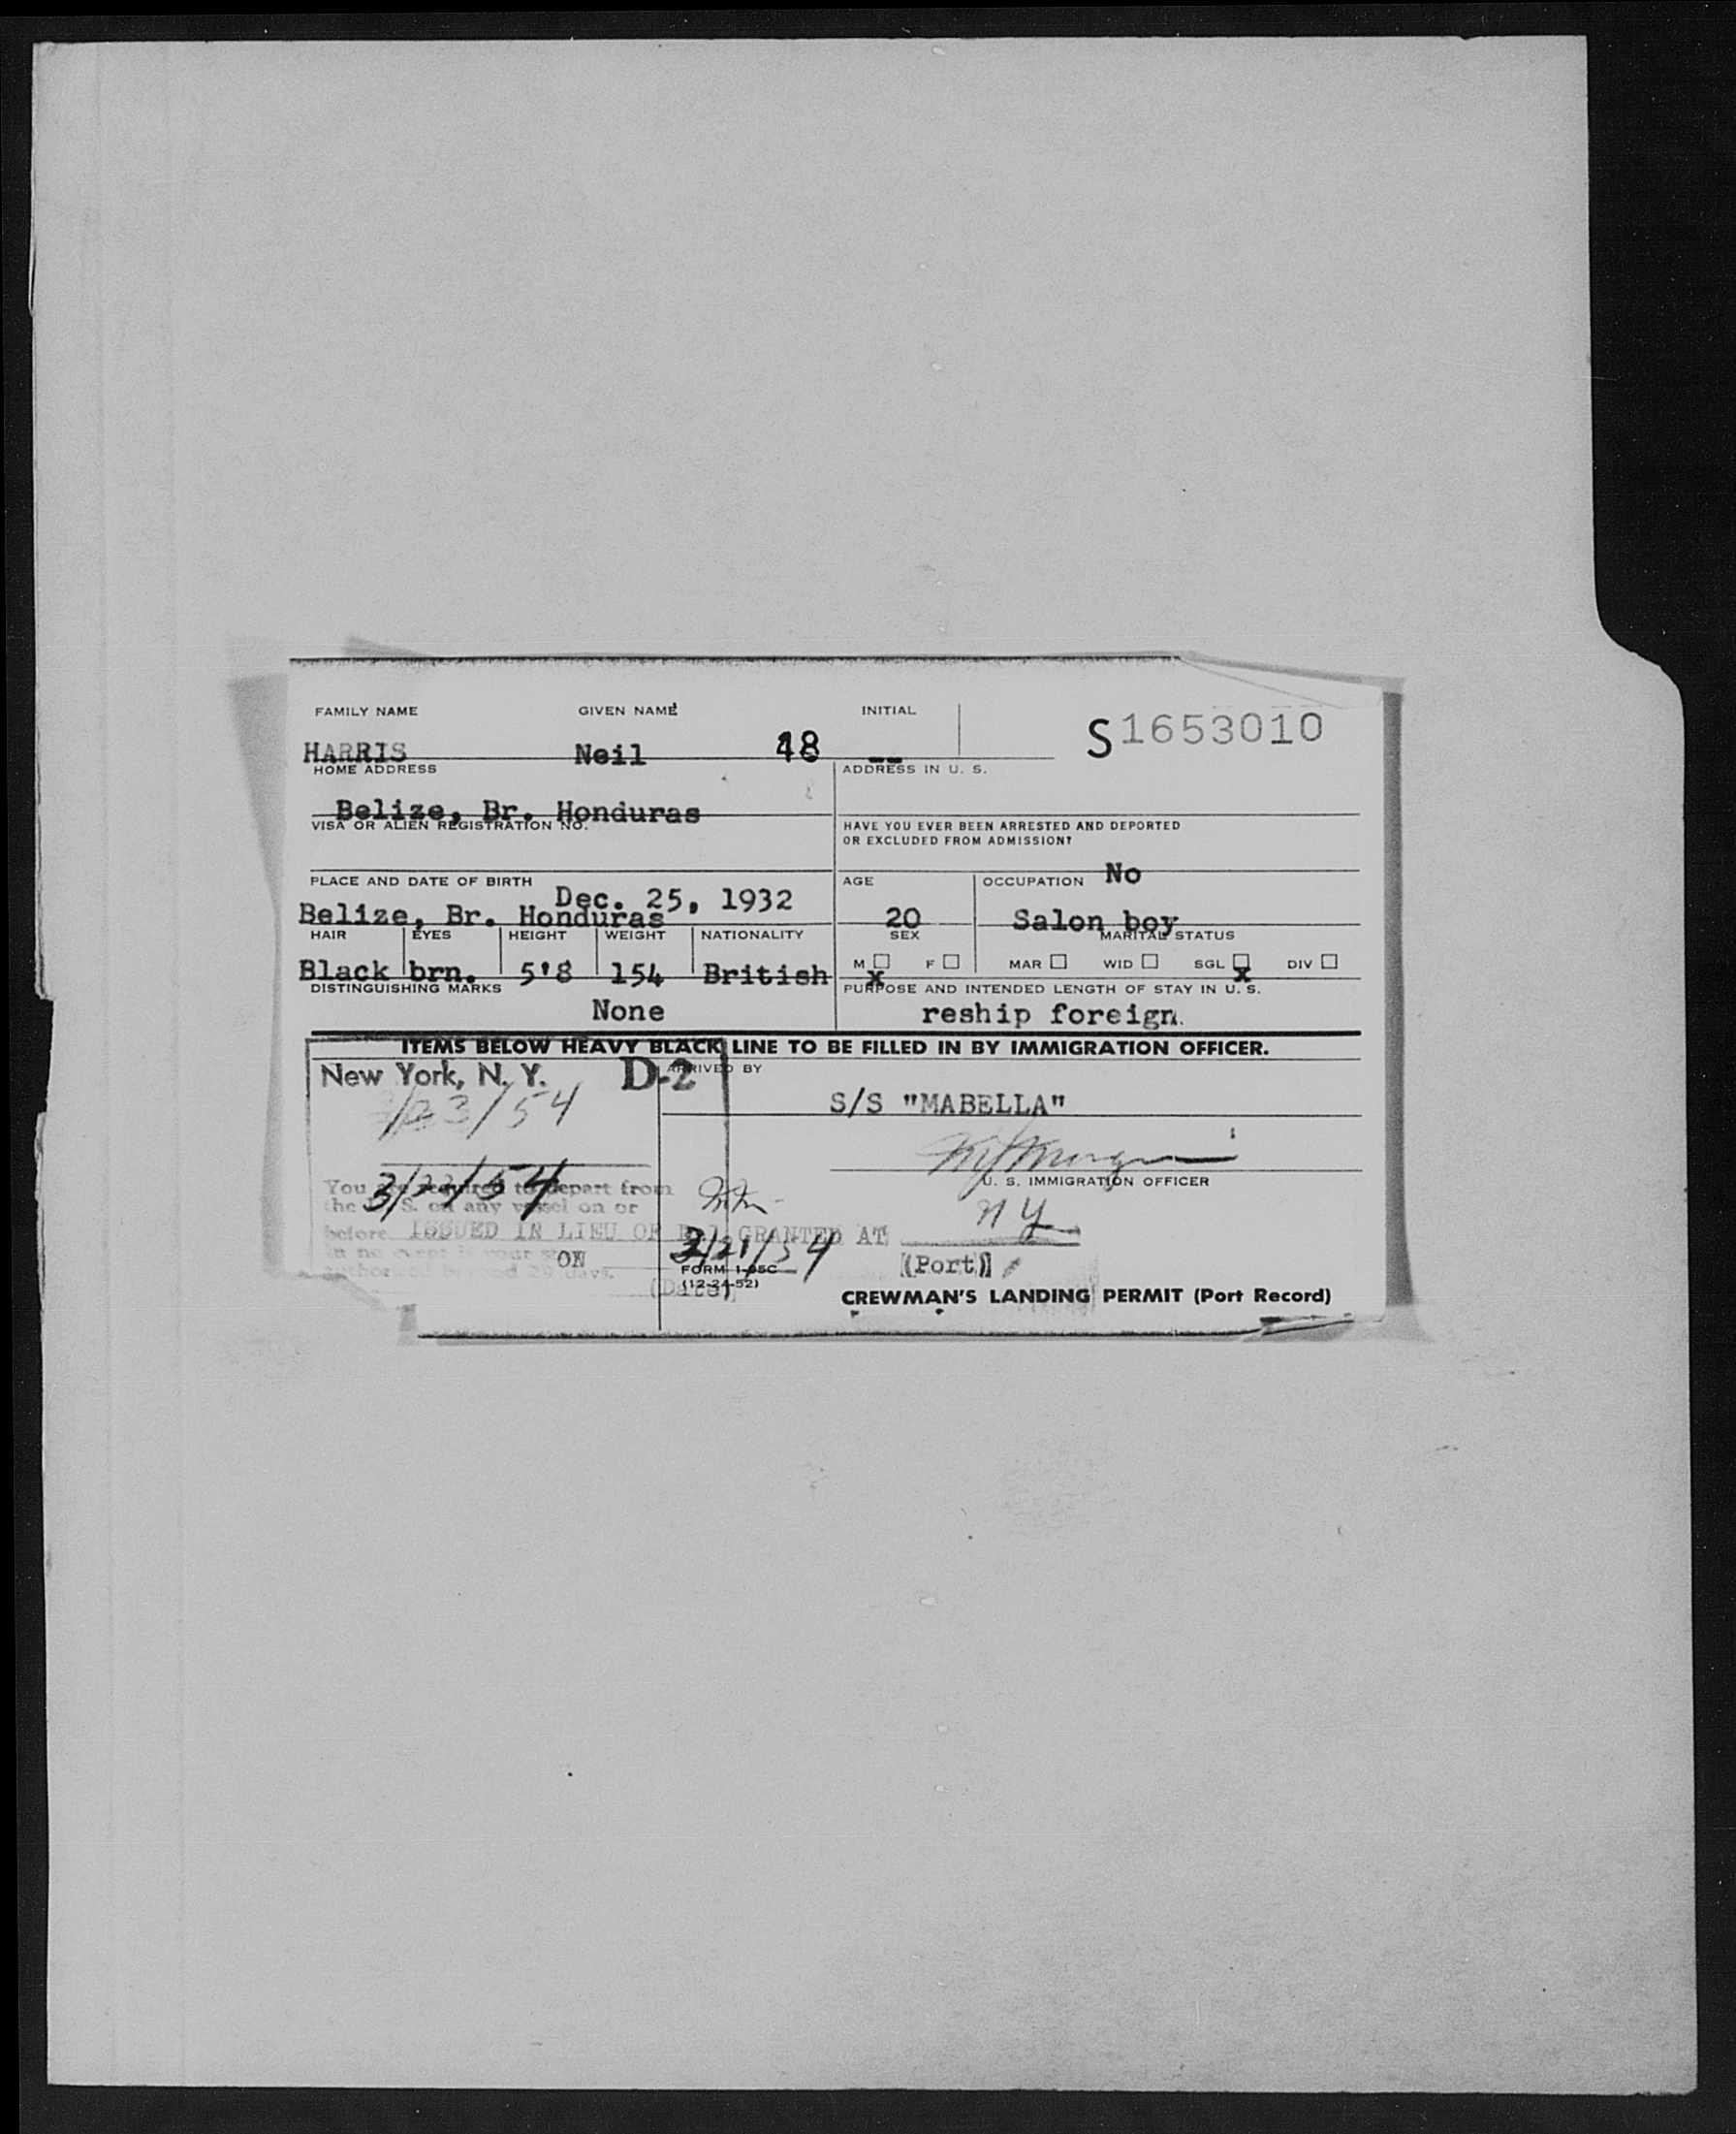 FAMILY NAME GIVEN NAME INITIAL
S1653010
HARRIS Neil 48 --
HOME ADDRESS ADDRESS IN U. S.
Belize, Br. Honduras
VISA OR ALIEN REGISTRATION NO. HAVE YOU EVER BEEN ARRESTED AND DEPORTED
OR EXCLUDED FROM ADMISSION?
No
PLACE AND DATE OF BIRTH AGE OCCUPATION
Dec. 25, 1932
Belize, Br. Honduras 20 Salon boy
HAIR EYES HEIGHT WEIGHT NATIONALITY SEX MARITAL STATUS
M ☐ F ☐ MAR ☐ WID ☐ SGL ☐ DIV ☐
Black brn. 5'8 154 British x x
DISTINGUISHING MARKS PURPOSE AND INTENDED LENGTH OF STAY IN U. S.
None reship foreign.
ITEMS BELOW HEAVY BLACK LINE TO BE FILLED IN BY IMMIGRATION OFFICER.
New York, N. Y. D-2 ARRIVED BY
S/S "MABELLA"
3/23/54
U. S. IMMIGRATION OFFICER
You are required to depart from
the U. S. on any vessel on or
N Y
before ISSUED IN LIEU OF GRANTED AT
in no event is your stay
ON 3/21/54 (Port)
authorized beyond 29 days.
FORM I-95C
(12-24-52)
(Date)
CREWMAN'S LANDING PERMIT (Port Record)